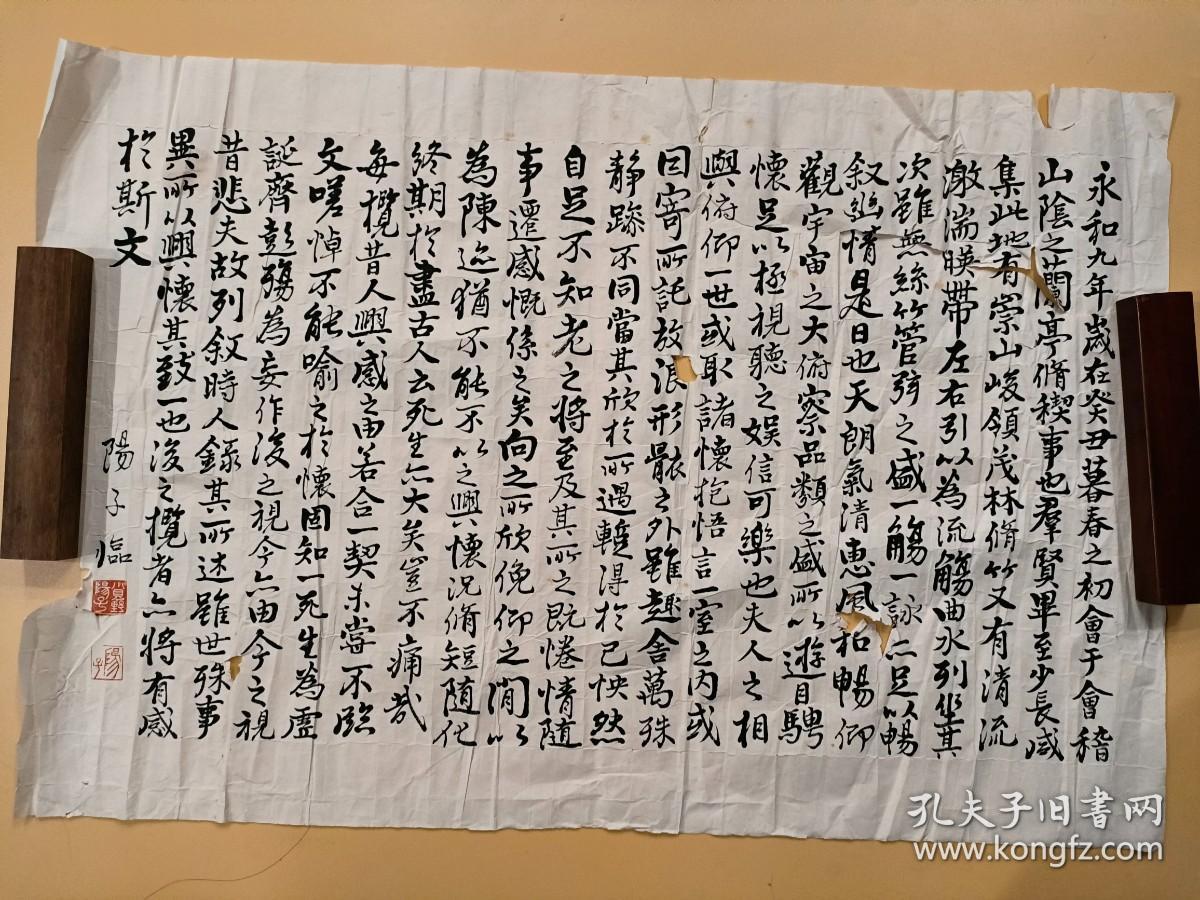 永和九年歲在癸丑暮春之初會于會稽
山陰之蘭亭脩稧事也羣賢畢至少長咸
集此地有崇山峻領茂林脩竹又有清流
激湍暎帶左右引以為流觴曲水列坐其
次雖無絲竹管弦之盛一觴一詠亦足以暢
叙幽情是日也天朗氣清惠風和暢仰
觀宇宙之大俯察品類之盛所以遊目騁
懷足以極視聽之娛信可樂也夫人之相
與俯仰一世或取諸懷抱悟言一室之內或
因寄所託放浪形骸之外雖趣舍萬殊
静躁不同當其欣於所遇暫得於己怏然
自足不知老之將至及其所之既惓情隨
事遷感慨係之矣向之所欣俛仰之閒以
為陳迹猶不能不以之興懷況脩短隨化
終期於盡古人云死生亦大矣豈不痛哉
每攬昔人興感之由若合一契未嘗不臨
文嗟悼不能喻之於懷固知一死生為虛
誕齊彭殤為妄作後之視今亦由今之視
昔悲夫故列叙時人錄其所述雖世殊事
異所以興懷其致一也後之攬者亦將有感
於斯文
陽子臨
陽子
孔夫子旧书网
www.kongfz.com